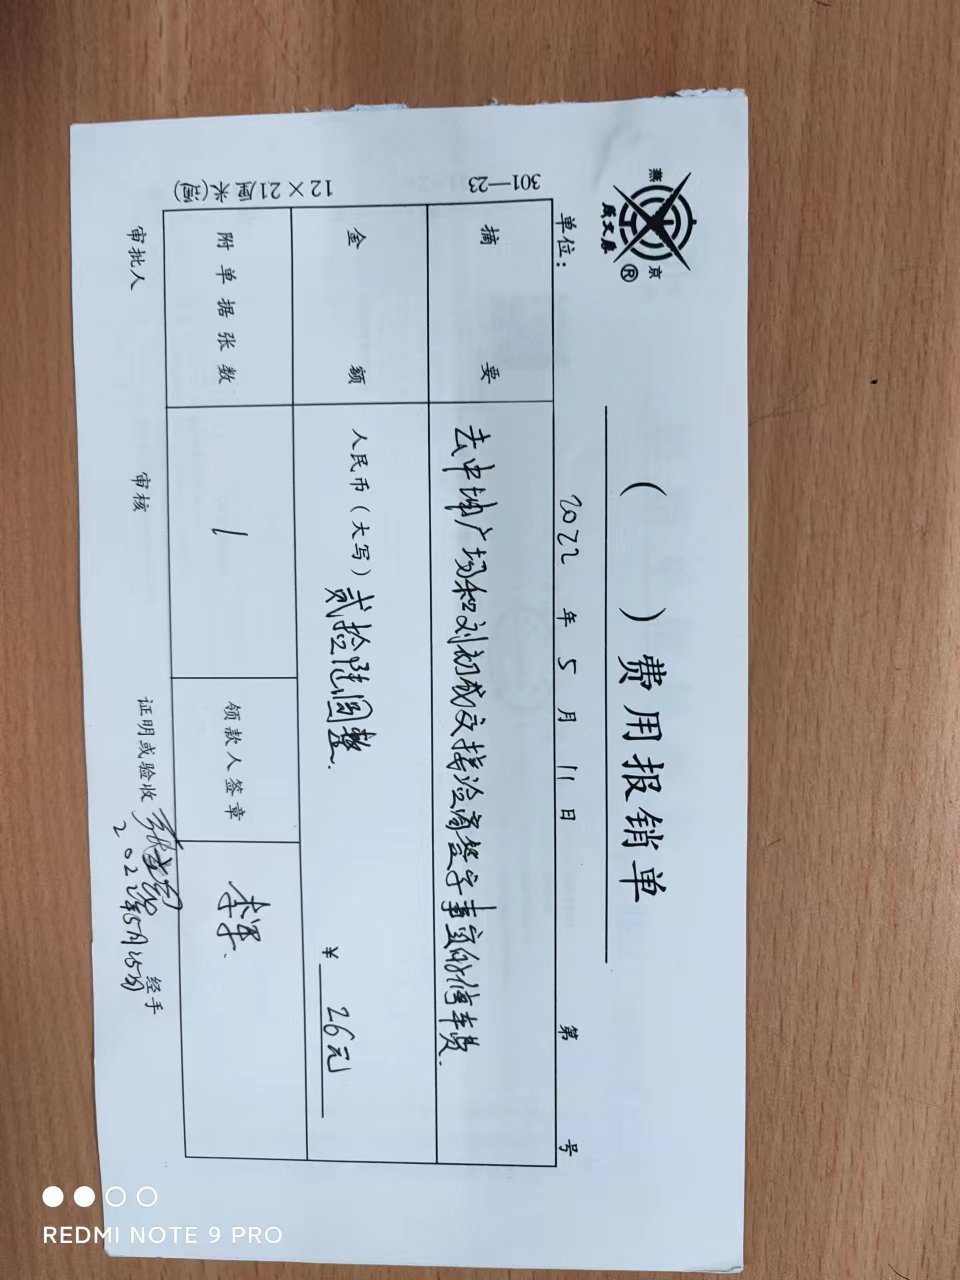 燕 京
成文厚 ®
( ) 费用报销单
单位： 2022 年 5 月 11 日 第 号
301—23
摘 要 去中坤广场和刘初成文接洽商签字事宜的停车费.
金 额 人民币（大写）贰拾陆圆整. ¥ 26元
附单据张数 1 领款人签章
12×21厘米(湖)
审批人 审核 证明或验收 经手
2022年5月25日
REDMI NOTE 9 PRO